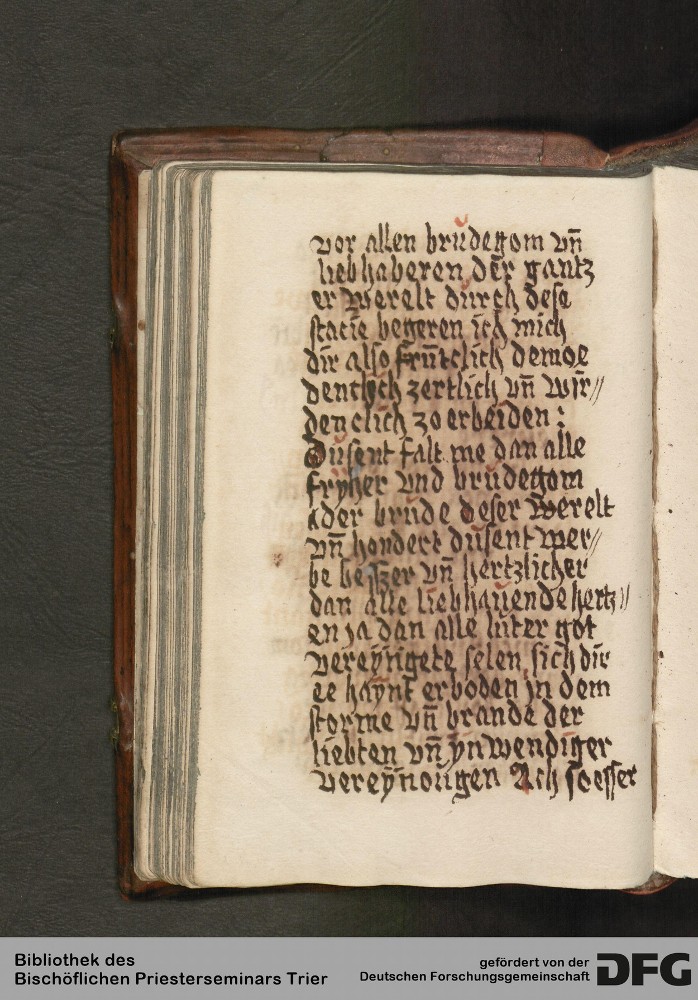 vor allen brudegom vñ
liebhaberen der gantz
er werelt durch dese
statie begeren ich mich
dir also frũtclich demoe
dentlych zertlich vñ wir//
denclich zo erbeiden:
Dusent falt me dan alle
fryher vnd brudegom
ader brude deser werelt
vñ hondert dusent wer//
be heiszer vñ hertzlicher
dan alle liebhauende hertz//
en ja dan alle luter got
vereynigete selen sich dir
ee haynt erboden in dem
storme vñ brande der
liebten vñ ynwendiger
vereynougen Ach soesser
Bibliothek des
Bischöflichen Priesterseminars Trier
gefördert von der
Deutschen Forschungsgemeinschaft DFG